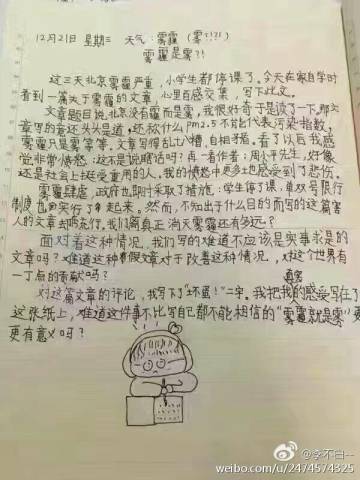 12月21日 星期三 天气:雾霾(雾?!?!)
雾霾是雾?!
这三天北京雾霾严重,小学生都停课了。今天在家自学时
看到一篇关于雾霾的文章,心里百感交集,写下此文。
文章题目说,北京没有霾而是雾。我很好奇于是读了一下。那文
章写的意还头头是道,还放什么PM2.5不能代表污染指数,
雾霾只是雾等等,文章写得乱七八糟,自相矛盾。看了以后我感
觉非常愤怒:这不是说瞎话吗?再一看作者:周小平先生,好像
还是社会上挺受重用的人,我的愤怒中更多地感受到了悲伤。
雾霾肆虐,政府也即时采取了措施:学生停了课,单双号限行
制度也实行了起来。然而,不知出于什么目的而写的这篇害
人的文章却而流行。我们离真正消灭雾霾还有多远?
面对着这种情况,我们写的难道不应该是实事求是的
文章吗?难道这种假文章对于改善这种情况,对这个世界有
一丁点的贡献吗?
对这篇文章的评论,我写下了"坏蛋!"二字。我把我的真实感受写在了
这张纸上,难道这件事不比写自己都不能相信的"雾霾就是雾"更
更有意义吗?
@李不白一
weibo.com/u/2474574325